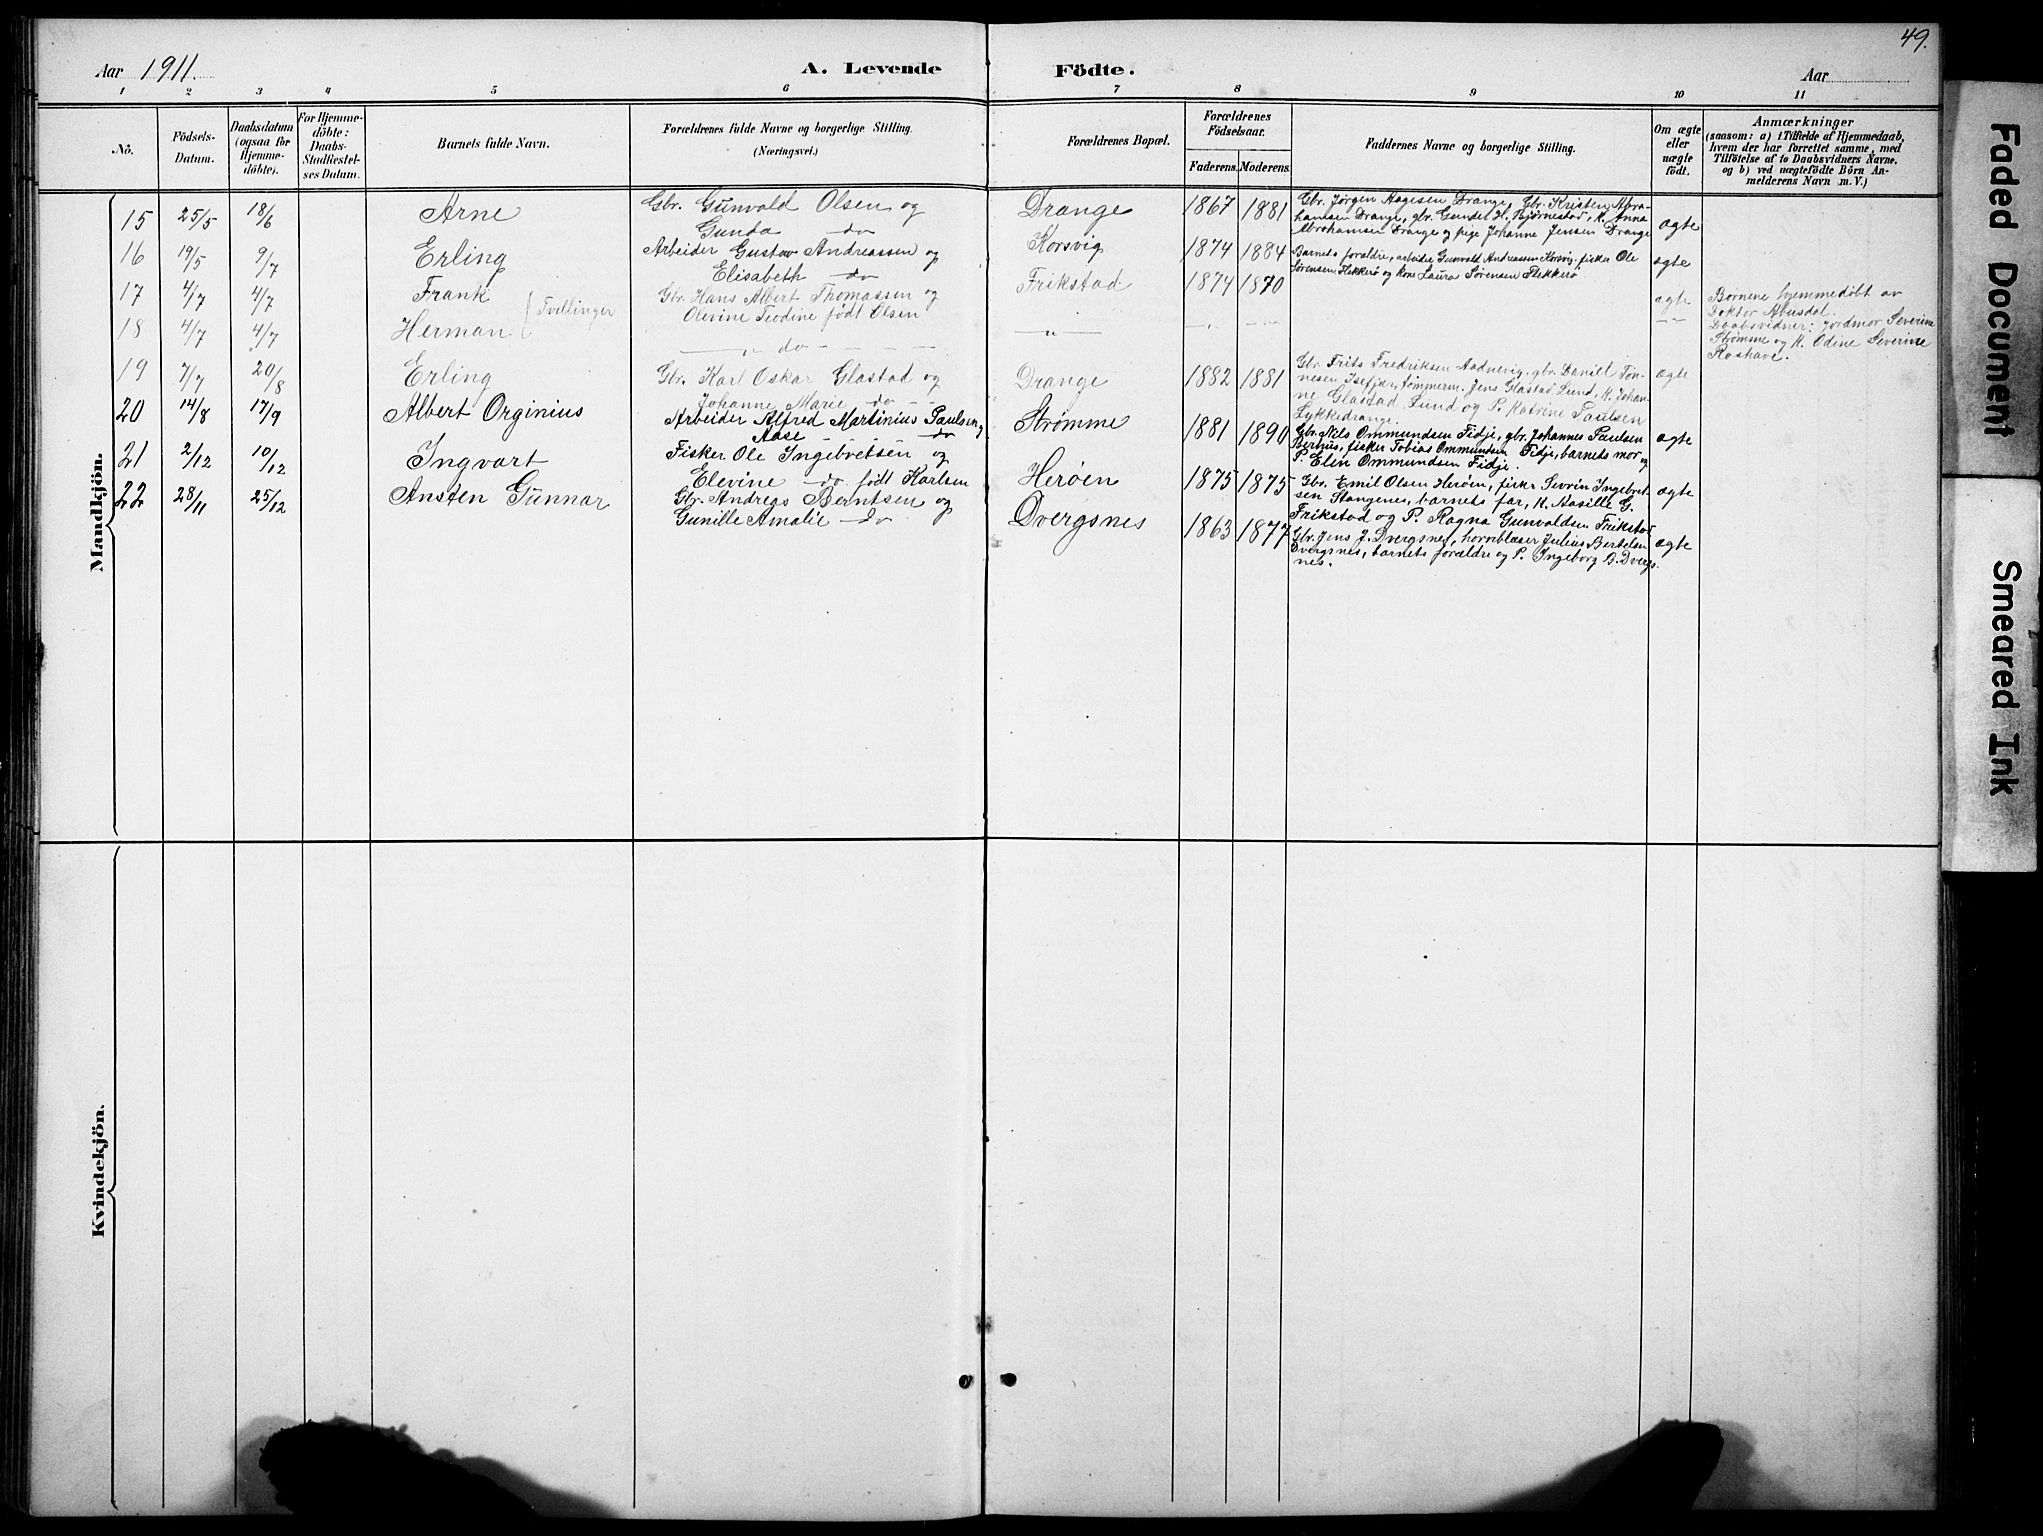 49.
Aar 1911. A. Levende Födte. Aar
1 2 3 4 5 6 7 8 9 10 11
Nó.
Födsels-
Datum.
Daabsdatum
(ogsaa for
Hjemme-
döbte).
For Hjemme-
döbte:
Daabs-
Stadfæstel-
ses Datum.
Barnets fulde Navn.
Forældrenes fulde Navne og borgerlige Stilling.
(Næringsvei.)
Forældrenes Bopæl.
Forældrenes
Födselsaar.
Faderens. Moderens.
Faddernes Navne og borgerlige Stilling.
Om ægte
eller
uægte
födt.
Anmærkninger
(saasom: a) i Tilfælde af Hjemmedaab,
hvem der har forrettet samme, med
Tilföielse af to Daabsvidners Navne.
og b) ved uægtefödte Börn An-
melderens Navn m. V.)
Mandkjön.
15 25/5 18/6 Arne
Gbr. Gunvald Olsen og
Gunda do
Drange 1867 1881
Gbr. Jørgen Aagesen Drange, Gbr. Kristen Abra-
hamsen Drange, gbr. Gundel H. Bjørnestad, K. Anna
Abrahamsen Drange og pige Johanne Jensen Drange
ægte
16 19/5 9/7 Erling
Arbeider Gustav Andreassen og
Elisabeth do
Korsvig 1874 1884
Barnets foraldre, arbeider Gunvald Andreassen Korsvig, fisker Ole
Sørensen Flekkerø og Kone Laura Sørensen Flekkerø
ægte
17 4/7 4/7 Frank
Tvillinger
Gbr. Hans Albert Thomassen og
Olevine Teodine født Olsen
Frikstad 1874 1870
ægte
18 4/7 4/7 Herman
— „ do — - - -
— „ — — „ — — „ — — „ —
Børnene hjemmedøbt av
Doktor Abusdal.
Daabsvidner: Jordmor Severine
Strømme og K. Odine Severine
Roshave.
19 7/7 20/8 Erling
Gbr. Karl Oskar Glastad og
Johanne Marie do - -
Drange 1882 1881
Gbr. Frits Fredriksen Aadnevig, gbr. Daniel Tøn-
nesen Isefjær, tømmerm. Jens Glastad Lund, K. Johan-
ne Glastad Lund og P. Katrine Paulsen
Lykkedrange.
ægte
20 14/8 17/9 Albert Orginius
Arbeider Alfred Martinius Paulsen og
Aase - - - - - do
Strømme 1881 1890
Gbr. Nils Ommundsen Fidje, gbr. Johannes Paulsen
Berhus, fisker Tobias Ommundsen Fidje, barnets mor og
P. Elin Ommundsen Fidje.
ægte
21 2/12 10/12 Ingvart
Fisker Ole Ingebretsen og
Elevine do født Karlsen
Herøen 1875 1875
Gbr. Emil Olsen Herøen, fisker Sevrin Ingebret-
sen Stangenes, barnets far, K. Aasille G.
Frikstad og P. Ragna Gunvaldsen Frikstad
ægte
22 28/11 25/12 Ansten Gunnar
Gbr. Andreas Berntsen og
Gunille Amalie — do
Dvergsnes 1863 1877
Gbr. Jens J. Dvergsnes, hornblæser Julius Bertelsen
Dvergsnes, barnets forældre og P. Ingeborg B. Dvergs-
nes.
ægte
Kvindekjön.
Faded Document
Smeared Ink